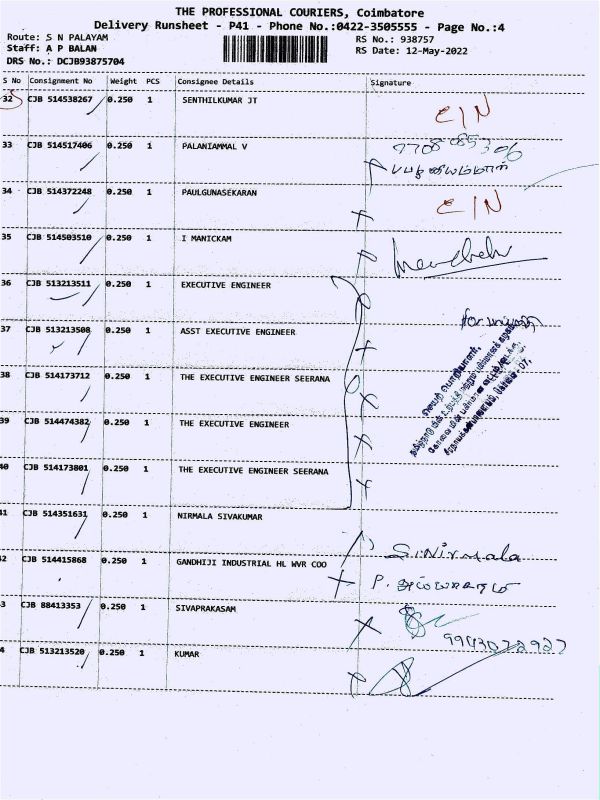 THE PROFESSIONAL COURIERS, Coimbatore
Delivery Runsheet - P41 - Phone No.:0422-3505555 - Page No.:4
Route: S N PALAYAM
RS No.: 938757
Staff: A P BALAN
RS Date: 12-May-2022
DRS No.: DCJB93875704
S No Consignment No Weight PCS Consignee Details Signature
32 CJB 514538267 0.250 1 SENTHILKUMAR JT C/N
33 CJB 514517406 0.250 1 PALANIAMMAL V
34 CJB 514372248 0.250 1 PAULGUNASEKARAN C/N
35 CJB 514503510 0.250 1 I MANICKAM
36 CJB 513213511 0.250 1 EXECUTIVE ENGINEER
37 CJB 513213508 0.250 1 ASST EXECUTIVE ENGINEER
38 CJB 514173712 0.250 1 THE EXECUTIVE ENGINEER SEERANA
39 CJB 514474382 0.250 1 THE EXECUTIVE ENGINEER
40 CJB 514173801 0.250 1 THE EXECUTIVE ENGINEER SEERANA
41 CJB 514351631 0.250 1 NIRMALA SIVAKUMAR S.Nirmala
42 CJB 514415868 0.250 1 GANDHIJI INDUSTRIAL HL WVR COO
3 CJB 88413353 0.250 1 SIVAPRAKASAM
4 CJB 513213520 0.250 1 KUMAR